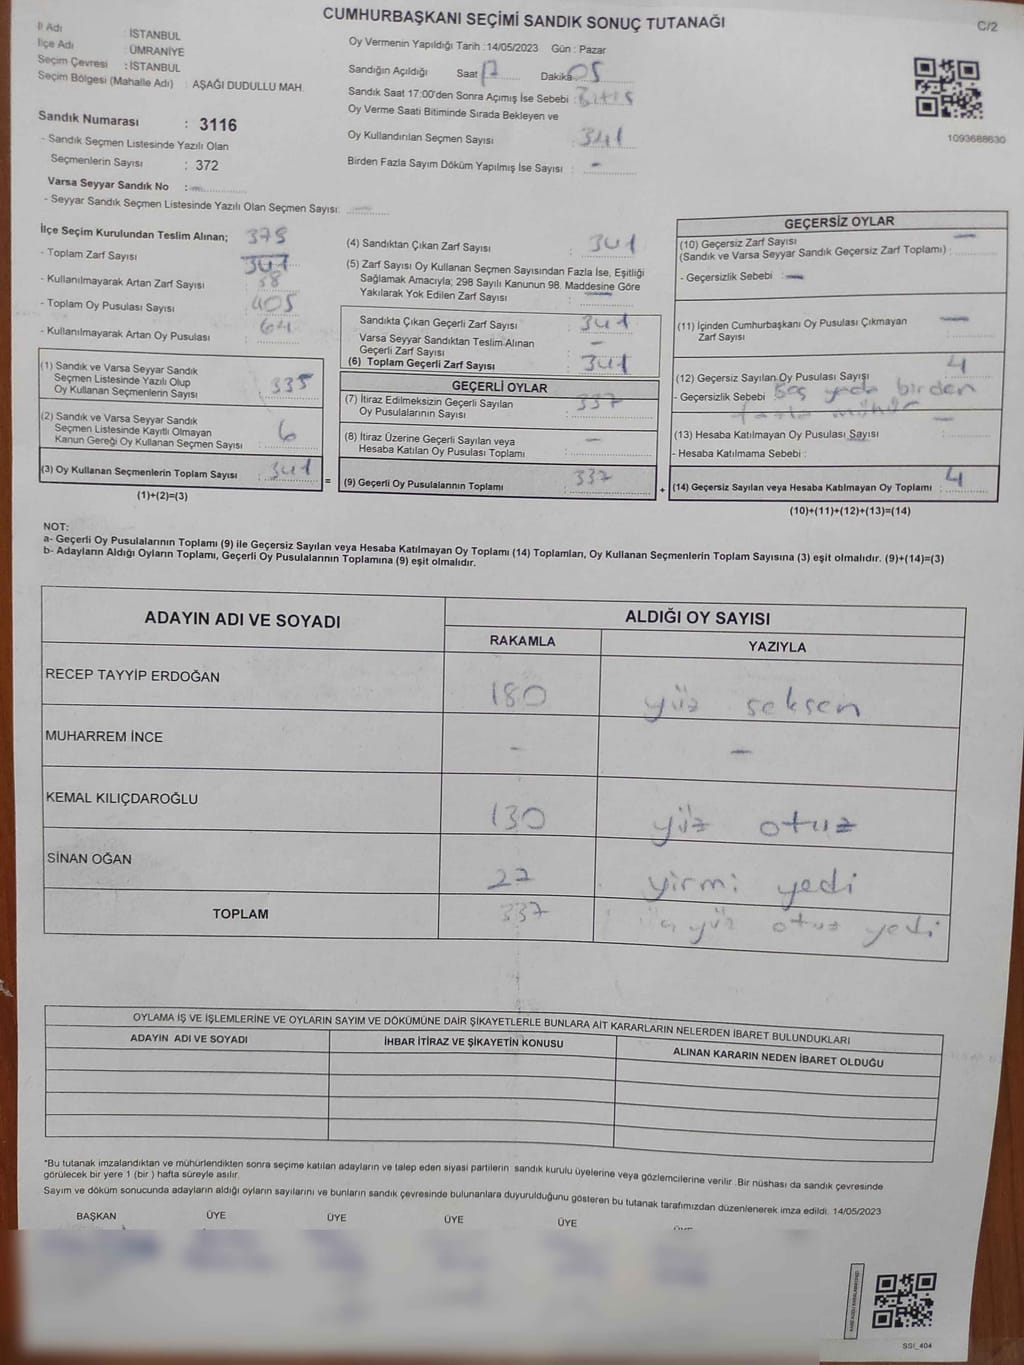 CUMHURBAŞKANI SEÇİMİ SANDIK SONUÇ TUTANAĞI
C/2
İl Adı : İSTANBUL
İlçe Adı : ÜMRANİYE
Seçim Çevresi : İSTANBUL
Seçim Bölgesi (Mahalle Adı) : AŞAĞI DUDULLU MAH.
Sandık Numarası : 3116
- Sandık Seçmen Listesinde Yazılı Olan
Seçmenlerin Sayısı : 372
Varsa Seyyar Sandık No : -
- Seyyar Sandık Seçmen Listesinde Yazılı Olan Seçmen Sayısı: -
Oy Vermenin Yapıldığı Tarih : 14/05/2023 Gün : Pazar
Sandığın Açıldığı Saat 17 Dakika 05
Sandık Saat 17:00'den Sonra Açımış İse Sebebi : Bitiş
Oy Verme Saati Bitiminde Sırada Bekleyen ve
Oy Kullandırılan Seçmen Sayısı : 341
Birden Fazla Sayım Döküm Yapılmış İse Sayısı : -
1093688630
İlçe Seçim Kurulundan Teslim Alınan; 379
- Toplam Zarf Sayısı : 347
- Kullanılmayarak Artan Zarf Sayısı : 38
- Toplam Oy Pusulası Sayısı : 405
- Kullanılmayarak Artan Oy Pusulası : 64
(1) Sandık ve Varsa Seyyar Sandık
Seçmen Listesinde Yazılı Olup
Oy Kullanan Seçmenlerin Sayısı : 335
(2) Sandık ve Varsa Seyyar Sandık
Seçmen Listesinde Kayıtlı Olmayan
Kanun Gereği Oy Kullanan Seçmen Sayısı : 6
(3) Oy Kullanan Seçmenlerin Toplam Sayısı : 341
(1)+(2)=(3)
(4) Sandıktan Çıkan Zarf Sayısı : 341
(5) Zarf Sayısı Oy Kullanan Seçmen Sayısından Fazla İse, Eşitliği
Sağlamak Amacıyla; 298 Sayılı Kanunun 98. Maddesine Göre
Yakılarak Yok Edilen Zarf Sayısı : -
Sandıkta Çıkan Geçerli Zarf Sayısı : 341
Varsa Seyyar Sandıktan Teslim Alınan
Geçerli Zarf Sayısı : -
(6) Toplam Geçerli Zarf Sayısı : 341
GEÇERLİ OYLAR
(7) İtiraz Edilmeksizin Geçerli Sayılan
Oy Pusulalarının Sayısı : 337
(8) İtiraz Üzerine Geçerli Sayılan veya
Hesaba Katılan Oy Pusulası Toplamı : -
= (9) Geçerli Oy Pusulalarının Toplamı : 337
GEÇERSİZ OYLAR
(10) Geçersiz Zarf Sayısı -
(Sandık ve Varsa Seyyar Sandık Geçersiz Zarf Toplamı) :
- Geçersizlik Sebebi : -
(11) İçinden Cumhurbaşkanı Oy Pusulası Çıkmayan -
Zarf Sayısı :
(12) Geçersiz Sayılan Oy Pusulası Sayısı : 4
- Geçersizlik Sebebi : Boş yada birden
fazla mühür
(13) Hesaba Katılmayan Oy Pusulası Sayısı : -
- Hesaba Katılmama Sebebi :
+ (14) Geçersiz Sayılan veya Hesaba Katılmayan Oy Toplamı : 4
(10)+(11)+(12)+(13)=(14)
NOT:
a- Geçerli Oy Pusulalarının Toplamı (9) ile Geçersiz Sayılan veya Hesaba Katılmayan Oy Toplamı (14) Toplamları, Oy Kullanan Seçmenlerin Toplam Sayısına (3) eşit olmalıdır. (9)+(14)=(3)
b- Adayların Aldığı Oyların Toplamı, Geçerli Oy Pusulalarının Toplamına (9) eşit olmalıdır.
ADAYIN ADI VE SOYADI ALDIĞI OY SAYISI
RAKAMLA YAZIYLA
RECEP TAYYİP ERDOĞAN 180 yüz seksen
MUHARREM İNCE - -
KEMAL KILIÇDAROĞLU 130 yüz otuz
SİNAN OĞAN 27 yirmi yedi
TOPLAM 337 üç yüz otuz yedi
OYLAMA İŞ VE İŞLEMLERİNE VE OYLARIN SAYIM VE DÖKÜMÜNE DAİR ŞİKAYETLERLE BUNLARA AİT KARARLARIN NELERDEN İBARET BULUNDUKLARI
ADAYIN ADI VE SOYADI İHBAR İTİRAZ VE ŞİKAYETİN KONUSU ALINAN KARARIN NEDEN İBARET OLDUĞU
*Bu tutanak imzalandıktan ve mühürlendikten sonra seçime katılan adayların ve talep eden siyasi partilerin sandık kurulu üyelerine veya gözlemcilerine verilir .Bir nüshası da sandık çevresinde
görülecek bir yere 1 (bir ) hafta süreyle asılır.
Sayım ve döküm sonucunda adayların aldığı oyların sayılarını ve bunların sandık çevresinde bulunanlara duyurulduğunu gösteren bu tutanak tarafımızdan düzenlenerek imza edildi. 14/05/2023
BAŞKAN ÜYE ÜYE ÜYE ÜYE ÜYE
SSI_404